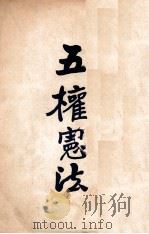 五權憲法
mtoou.info